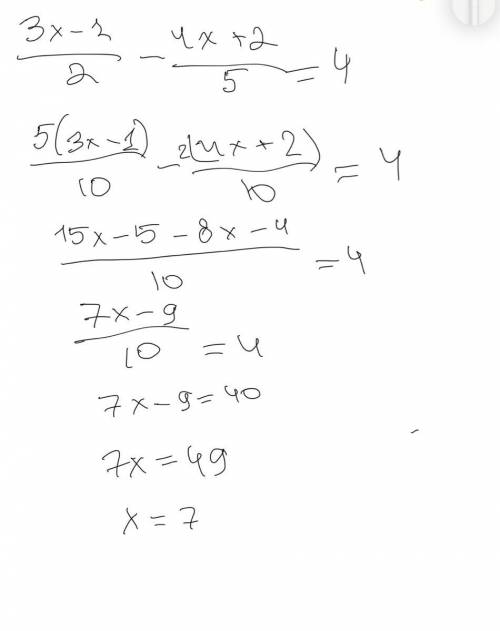 (3x-1)/2 - (4x+2)/5 = 4
5(3x-1)/10 - 2(4x+2)/10 = 4
(15x-5-8x-4)/10 = 4
(7x-9)/10 = 4
7x-9=40
7x=49
x=7